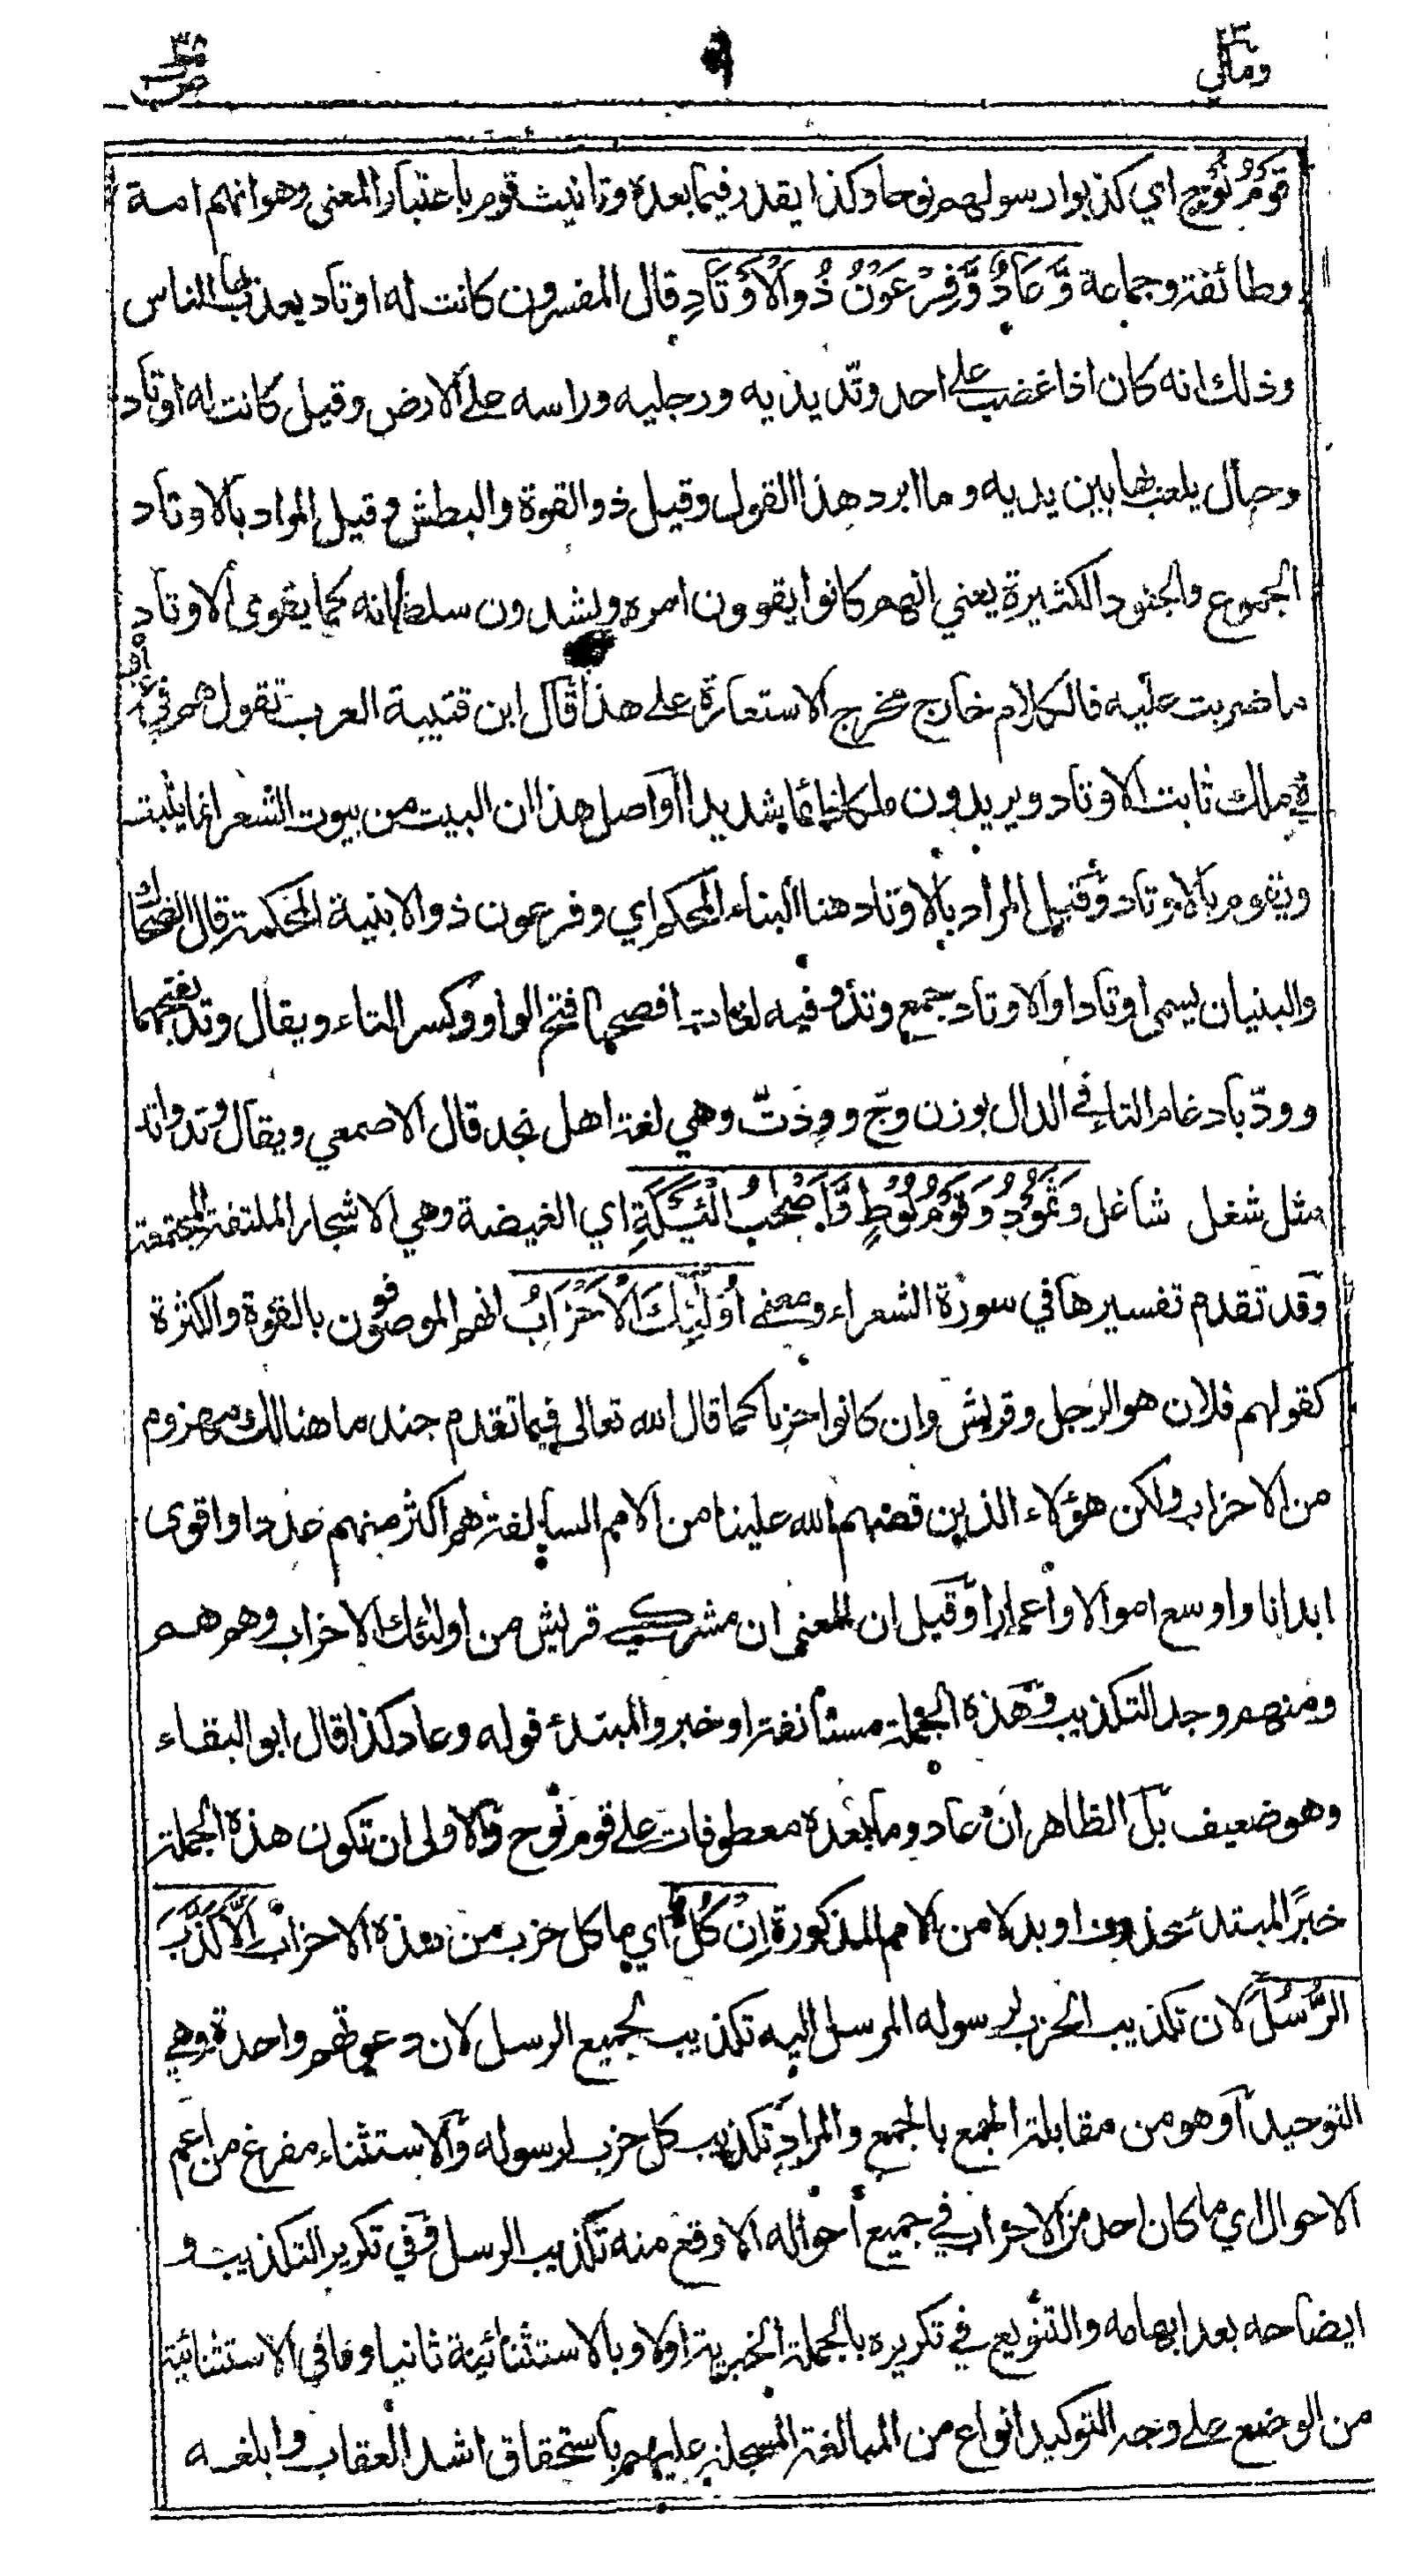 ومالي ٢٣
٩
ص ٣٨
قَوْمُ نُوحٍ اي كذبوا رسولهم نوحا وكذا يقدر فيما بعده وتانيث قوم باعتبار المعنى وهو انهم امة
وطائفة وجماعة وَّعَادٌ وَّفِرْعَوْنُ ذُو الْاَوْتَادِ قال المفسرون كانت له اوتاد يعذب بها الناس
وذلك انه كان اذا غضب على احد وتّد يديه ورجليه وراسه على الارض وقيل كانت له اوتاد
وحبال يلعب بها بين يديه وما ابرد هذا القول وقيل ذو القوة والبطش وقيل المراد بالاوتاد
الجموع والجنود الكثيرة يعني انهم كانوا يقوون امره ويشدون سلطانه كما يقوى الاوتاد
ما ضربت عليه فالكلام خارج مخرج الاستعارة على هذا قال ابن قتيبة العرب تقول هم في عز
في ملك ثابت الاوتاد ويريدون ملكا دائما شديدا واصل هذا ان البيت من بيوت الشعر انما يثبت
ويقوم بالاوتاد وقيل المراد بالاوتاد هنا البناء المحكم اي وفرعون ذو الابنية المحكمة قال الضحاك
والبنيان يسمى اوتادا والاوتاد جمع وتد وفيه لغات افصحها فتح الواو وكسر التاء ويقال وتد بفتحهما
وودّ بادغام التاء في الدال بوزن وجّ ووذتّ وهي لغة اهل نجد قال الاصمعي ويقال وتد واتد
مثل شغل شاغل وَثَمُوْدُ وَقَوْمُ لُوْطٍ وَّاَصْحٰبُ الْئَيْكَةِ اي الغيضة وهي الاشجار الملتفة المجتمعة
وقد تقدم تفسيرها في سورة الشعراء ومعنى اُولٰٓئِكَ الْاَحْزَابُ انهم الموصوفون بالقوة والكثرة
كقولهم فلان هو الرجل وقريش وان كانوا حزبا كما قال الله تعالى فيما تقدم جند ما هنالك مهزوم
من الاحزاب ولكن هؤلاء الذين قصهم الله علينا من الامم السالفة هم اكثر منهم عددا واقوى
ابدانا واوسع اموالا واعمارا وقيل ان المعنى ان مشركي قريش من اولئك الاحزاب وهم هم
ومنهم وجد التكذيب وهذه الجملة مستانفة او خبر والمبتدء قوله وعاد كذا قال ابو البقاء
وهو ضعيف بل الظاهر ان عاد وما بعده معطوفات على قوم نوح والاولى ان تكون هذه الجملة
خبرا لمبتدء محذوف او بدلا من الامم المذكورة اِنْ كُلٌّ اي ما كل حزب من هذه الاحزاب اِلَّا كَذَّبَ
الرُّسُلَ لان تكذيب الحزب لرسوله المرسل اليه تكذيب لجميع الرسل لان دعوتهم واحدة وهي
التوحيد او هو من مقابلة الجمع بالجمع والمراد تكذيب كل حزب لرسوله والاستثناء مفرغ من اعم
الاحوال اي ما كان احد من الاحزاب في جميع احواله الا وقع منه تكذيب الرسل وفي تكرير التكذيب و
ايضاحه بعد ابهامه والتنويع في تكريره بالجملة الخبرية اولا وبالاستثنائية ثانيا وما في الاستثنائية
من الوضع على وجه التوكيد انواع من المبالغة المسجلة عليهم باستحقاق اشد العقاب وابلغه